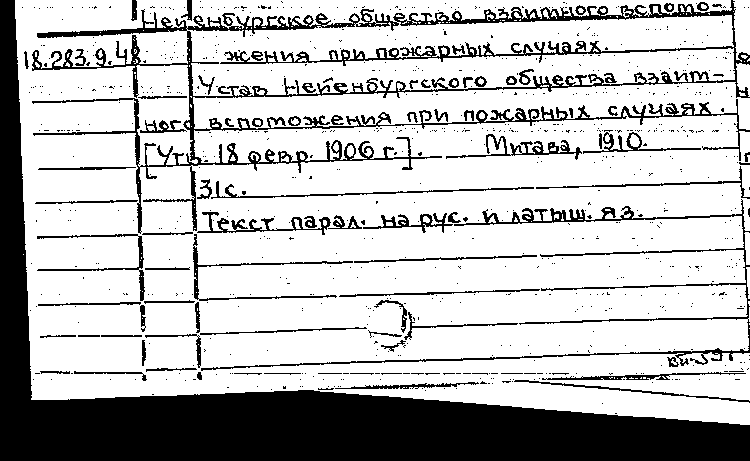 Нейенбургское общество взаимного вспомо-
18.283.9.48. жения при пожарных случаях.
Устав Нейенбургского общества взаим-
ного вспоможения при пожарных случаях.
[Утв. 18 февр. 1906 г.]. Митава, 1910.
31с.
Текст парал. на рус. и латыш. яз.